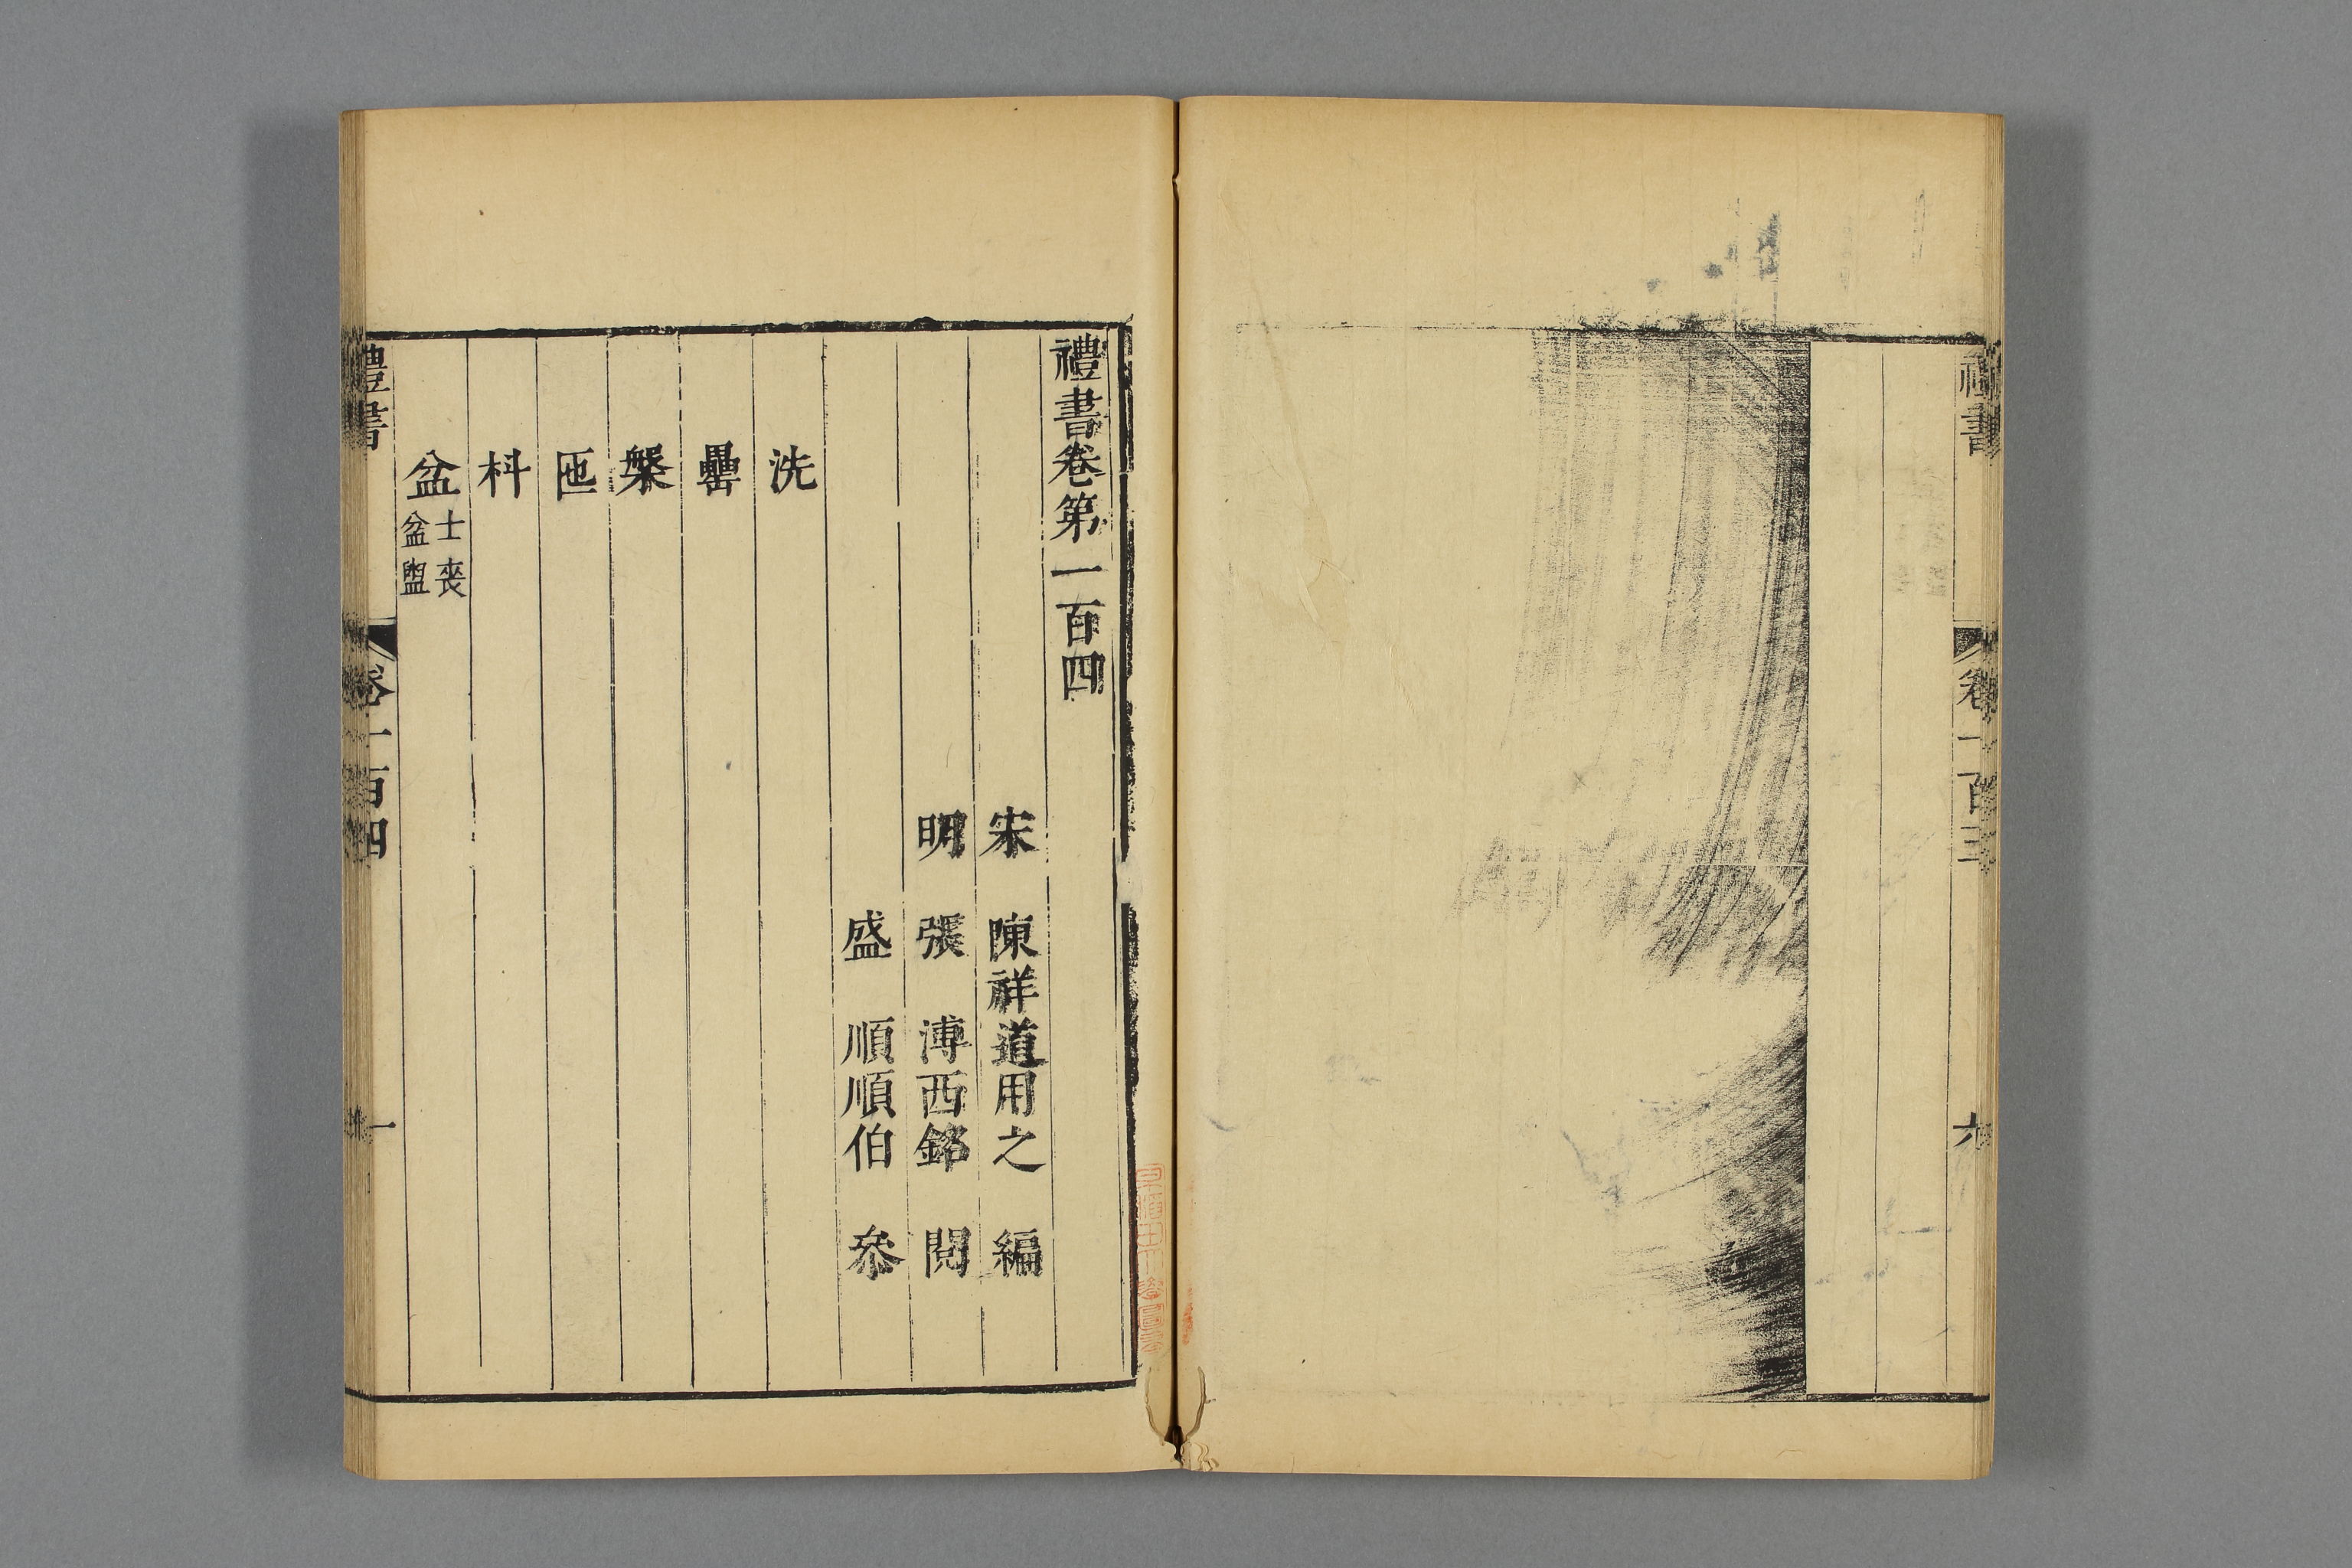 禮書
卷一百三
六
禮書卷第一百四
宋 陳祥道用之 編
明 張 溥西銘 閱
盛 順順伯 叅
洗
罍
槃
匜
枓
盆 士喪
盆盥
禮書
卷一百四
一